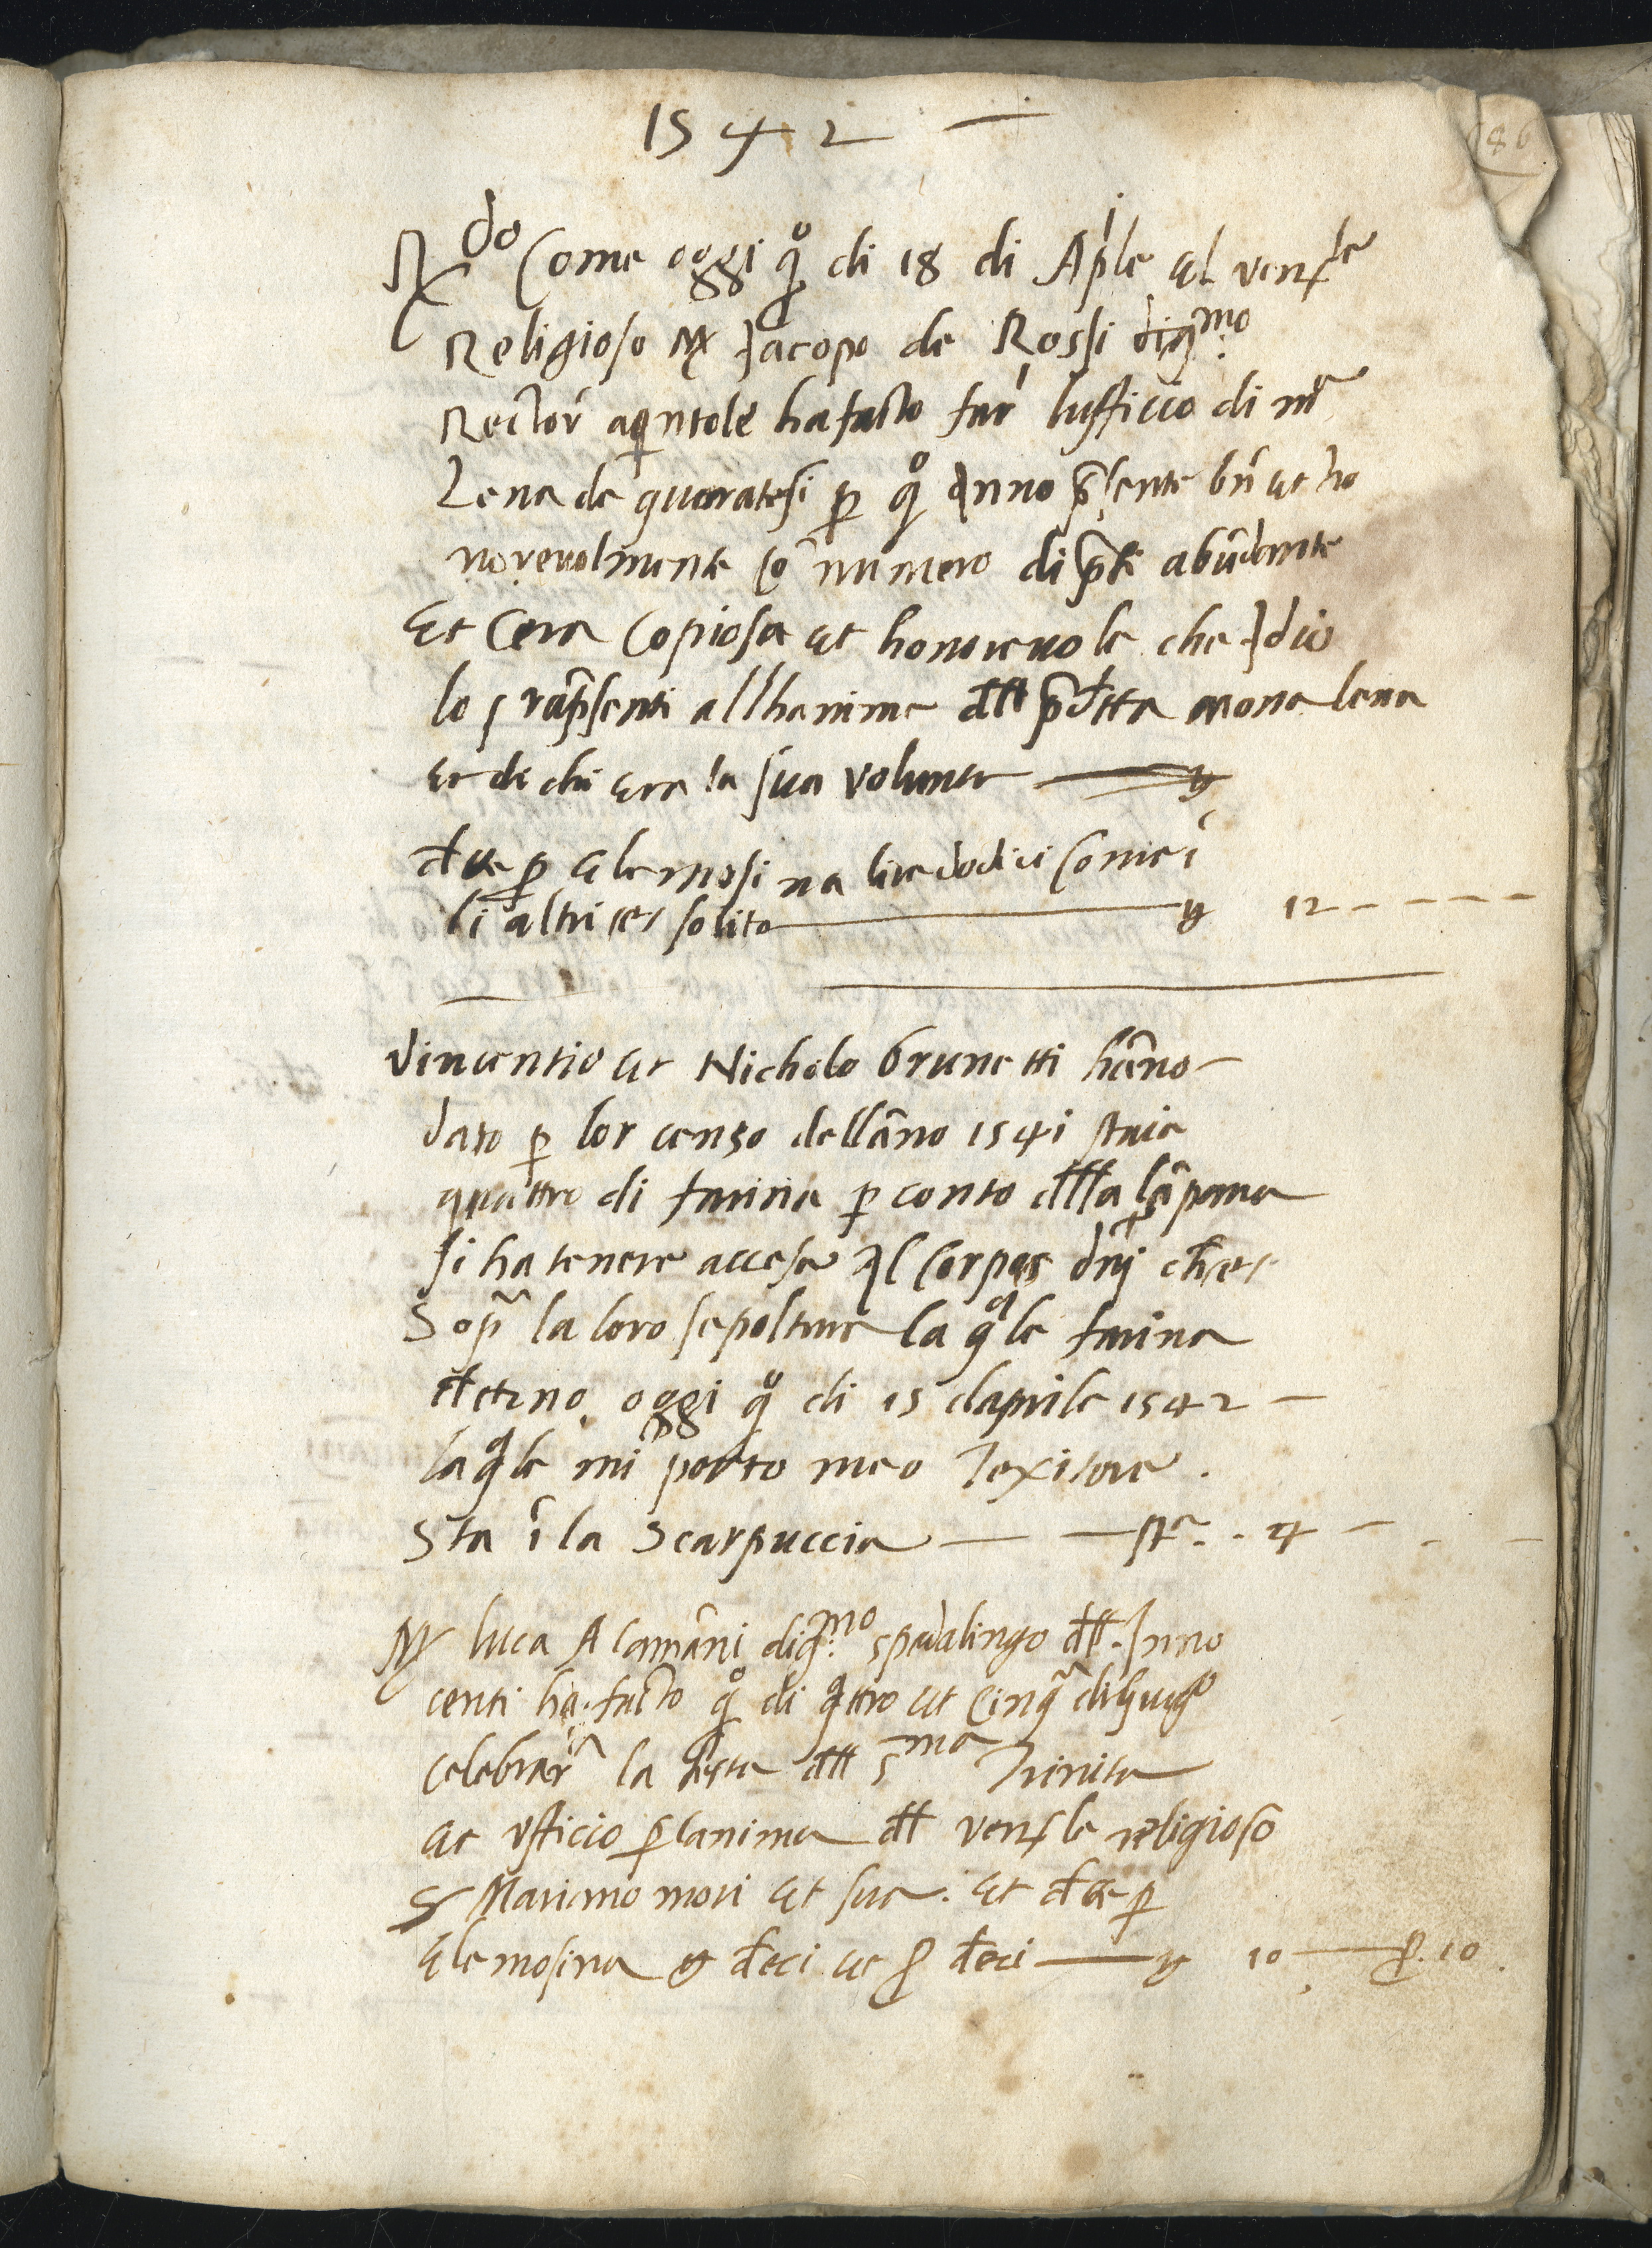 1542
146
R.do Come oggi q.o di 18 di Aple el ven.le
Religioso M. Jacopo de Rossi dig.mo
Rector a quntole ha facto far lufficio di m.a
Lena de guaratesi p q.o Anno p̃sente bñ et ho
norevolmente cõ numero di p̃ti abũdante
Et Cera Copiosa et honorevole che Idio
lo rap̃senti all hanima dll p̃dtta mona lena
et di chi era la sua volunta
dte p elemosina lire dodici come i
li altri et solito 12
Vincentio et Nicholo brunetti hãno
dato p lor censo dellãno 1541 staia
quattro di farina p conto dlla lãpana
si ha tenere accesa Al Corpus dñj ch et
Sop̃a la loro sepoltura la qle farina
dtetno oggi q.o di 15 daprile 1542
laqle mi porto meo Texitore.
Sta ĩ la Scarpuccia st.a 4
M. luca Alamãni dig.mo spedalingo dll Inno
centi ha facto q.o di qttro et Cinq̃ di giug.o
celebrar la festa dll s.ma Trinita
et ufficio p lanima dll ven.le religioso
S. Mariano mori et sua. et dte p
Elemosina deci et deci 10 10